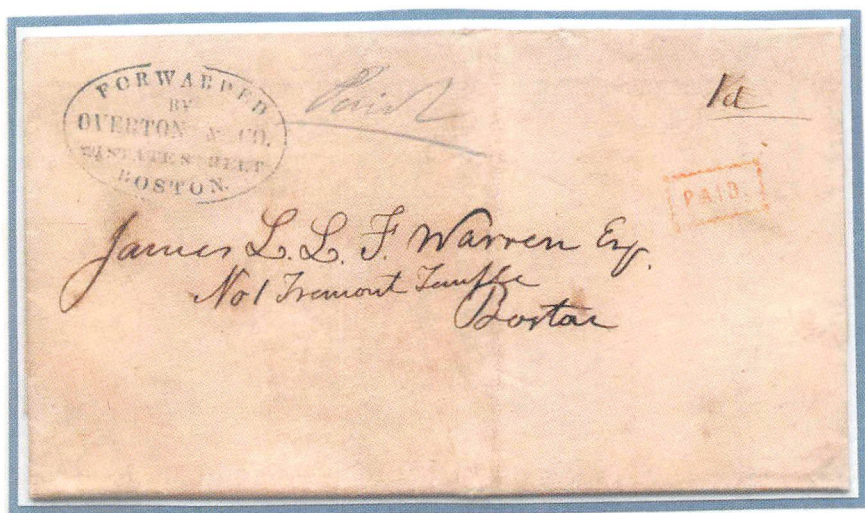 FORWARDED
BY
OVERTON & CO.
STATE STREET
BOSTON.
Paid
PAID.
James L. L. F. Warren Esq.
No 1 Tremont Temple
Boston